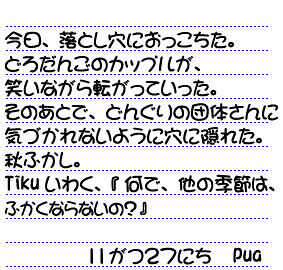 今日、落とし穴におっこちた。
どろだんごのカップルが、
笑いながら転がっていった。
そのあとで、どんぐりの団体さんに
気づかれないように穴に隠れた。
秋ふかし。
Tiku いわく、『何で、他の季節は、
ふかくならないの?』
11がつ27にち　Pua